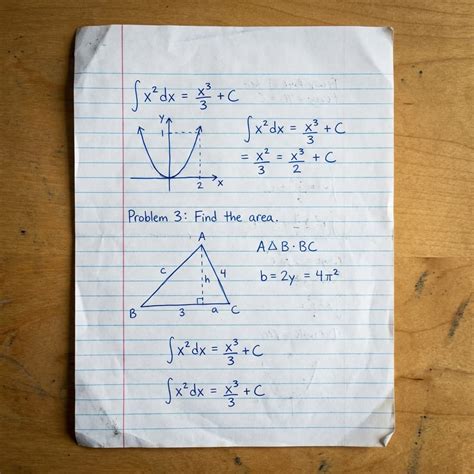 ∫x²dx = x³/3 + C
y
1
2
x
∫x²dx = x³/3 + C
= x²/3 = x³/2 + C
Problem 3: Find the area.
A
c
h
4
B
3
a
C
A△B·BC
b = 2y = 4π²
∫x²dx = x³/3 + C
∫x²dx = x³/3 + C